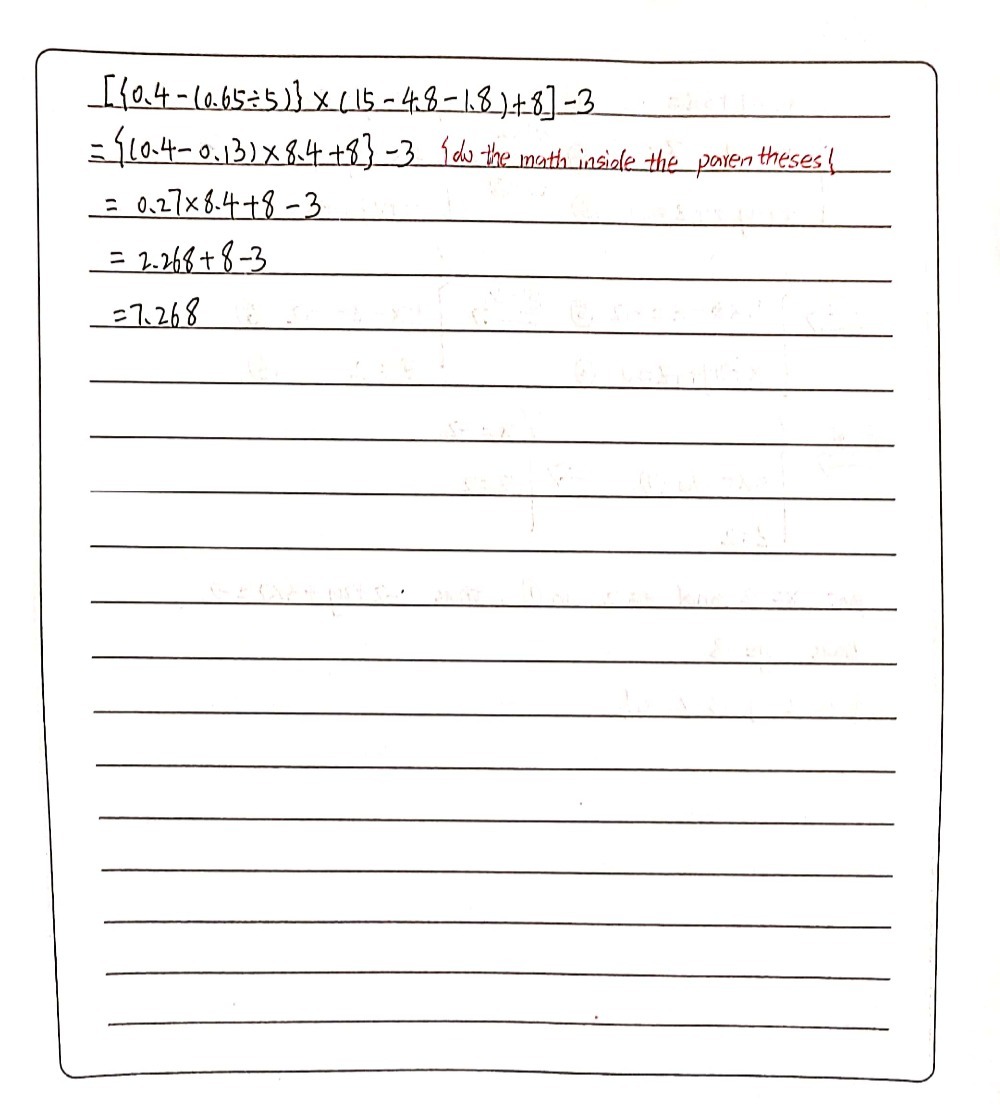 [{0.4-(0.65÷5)}×(15-4.8-1.8)+8]-3
={(0.4-0.13)×8.4+8}-3 {do the math inside the parentheses{
= 0.27×8.4+8-3
= 2.268+8-3
=7.268